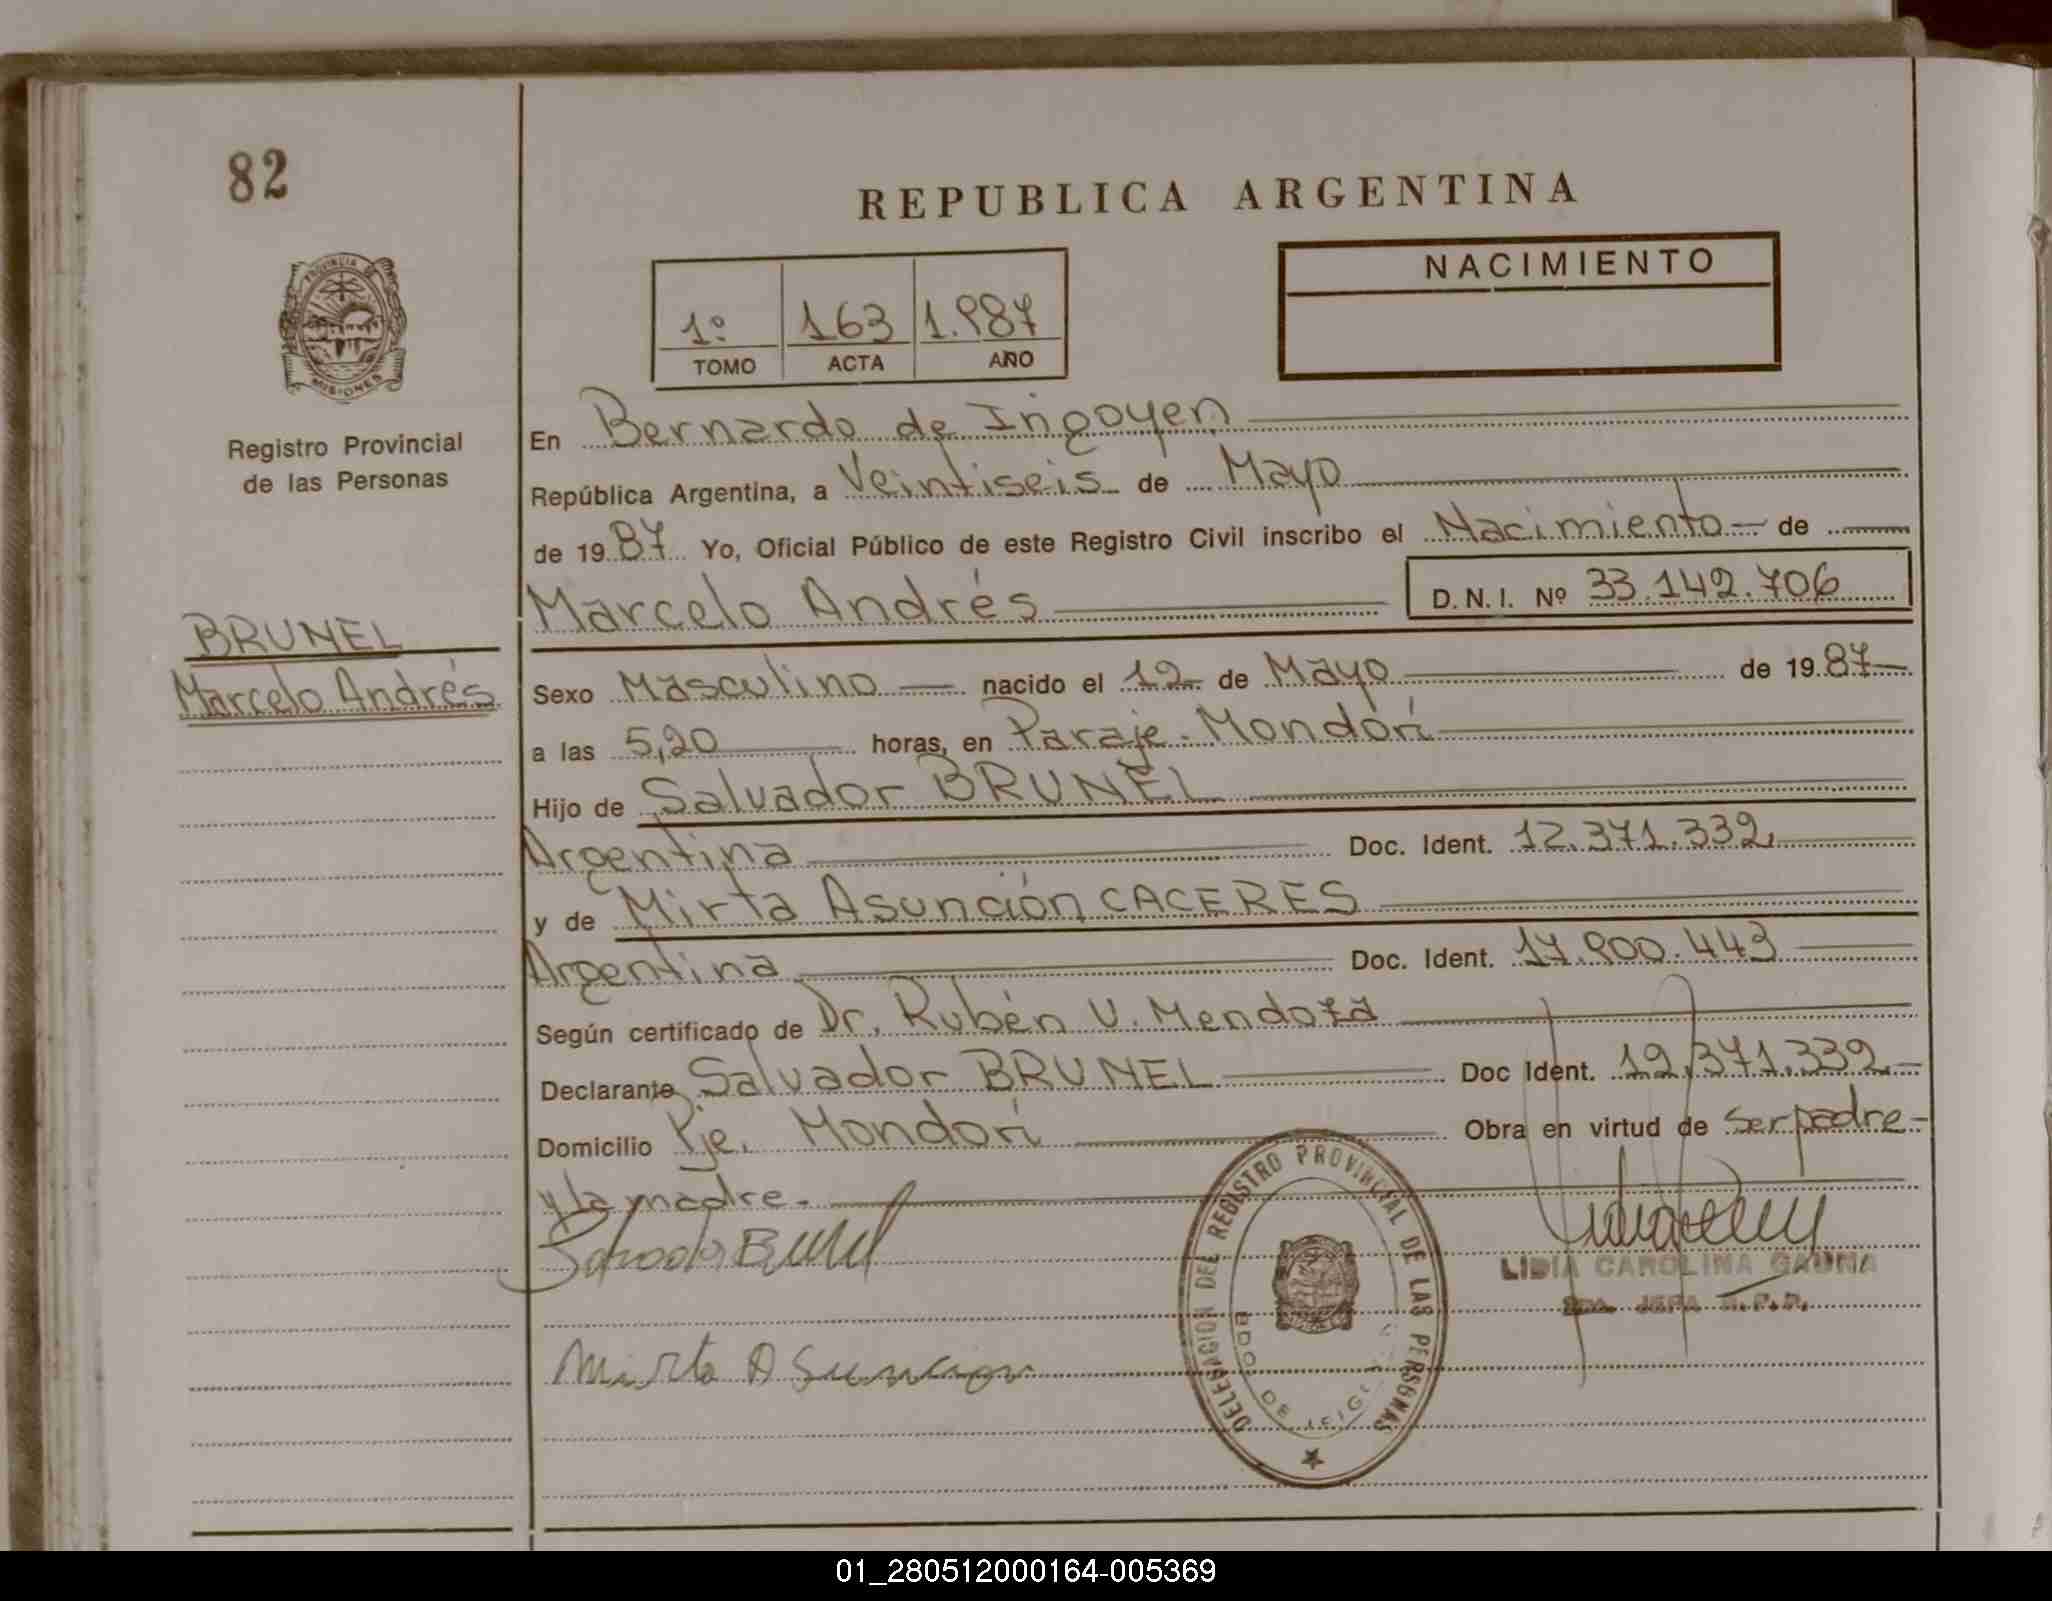 82
REPUBLICA ARGENTINA
NACIMIENTO
1º 163 1.987
TOMO ACTA AÑO
PROVINCIA DE
MISIONES
Registro Provincial
de las Personas
En Bernardo de Irigoyen
República Argentina, a Veintiseis de Mayo
de 1987 Yo, Oficial Público de este Registro Civil inscribo el Nacimiento de
Marcelo Andrés D.N.I. Nº 33.142.706
BRUNEL
Marcelo Andrés
Sexo Masculino nacido el 12 de Mayo de 1987
a las 5,20 horas, en Paraje Mondorí
Hijo de Salvador BRUNEL
Argentina Doc. Ident. 12.371.332
y de Mirta Asunción CACERES
Argentina Doc. Ident. 17.900.443
Según certificado de Dr. Rubén V. Mendoza
Declarante Salvador BRUNEL Doc Ident. 12.371.332
Domicilio Pje. Mondorí Obra en virtud de ser padre
y la madre.
Salvador Brunel
LIDIA CAROLINA GAUNA
JEFA R.P.P.
Mirta Asuncion
DELEGACION DEL REGISTRO PROVINCIAL DE LAS PERSONAS
BDO. DE
01_280512000164-005369